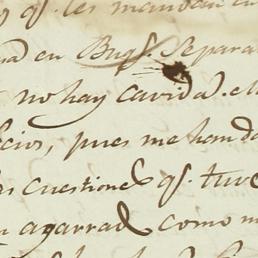 y qᵉ. les mandan en
en Buqˢ. Separa
no hay cavida. el
cios, pues me han da
cuestiones qᵉ. tuve
agarrad como m